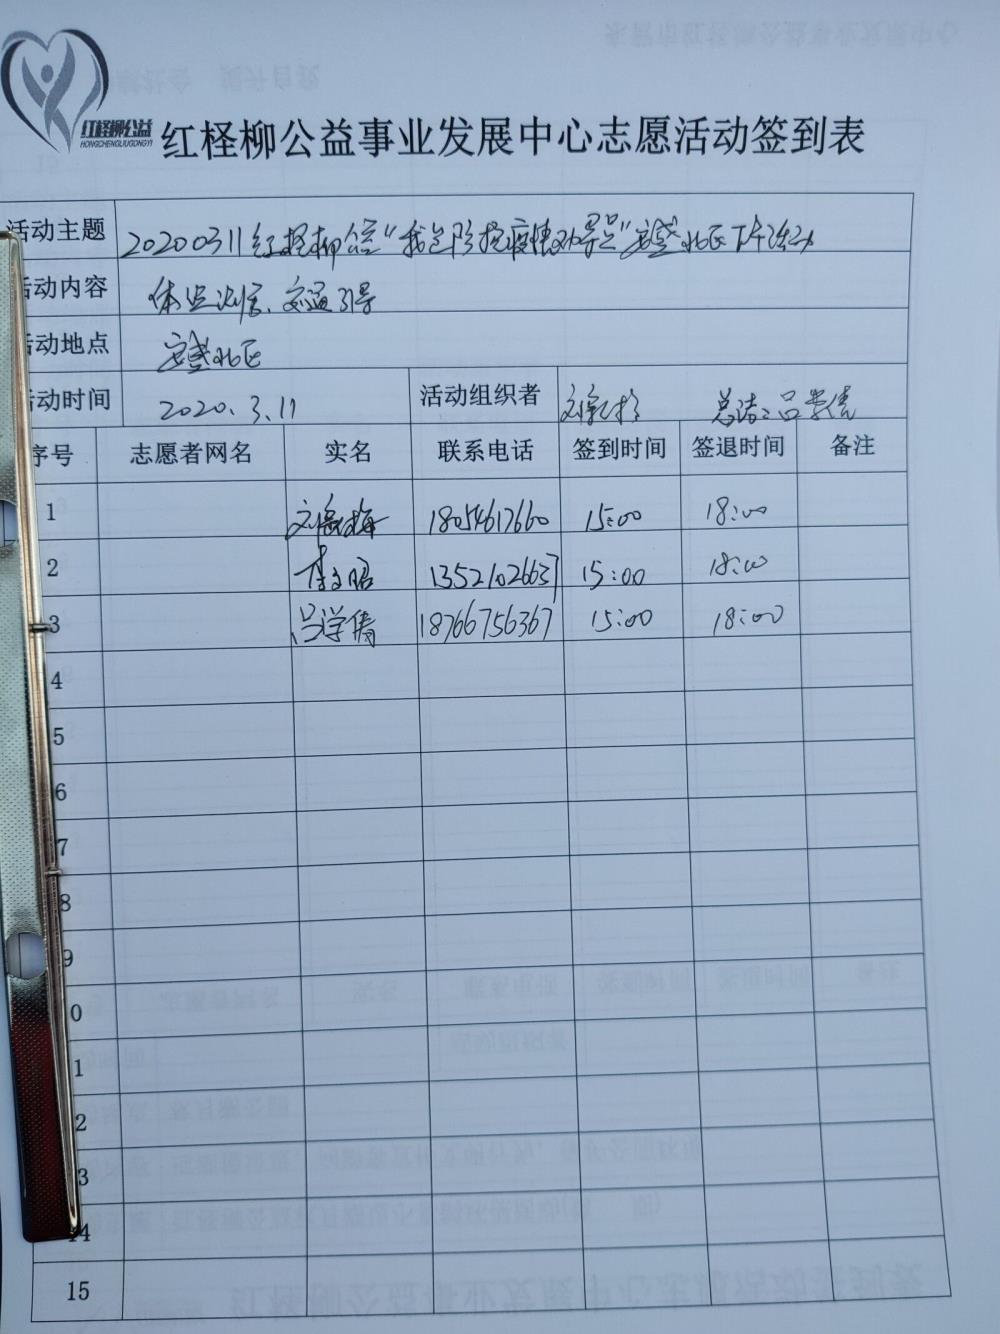 红柽柳公益
HONGCHENGLIUGONGYI
红柽柳公益事业发展中心志愿活动签到表
活动主题 20200311红柽柳公益“我是防控疫情劝导员”安盛北区下午活动
活动内容 体温测量、交通引导
活动地点 安盛北区
活动时间 2020.3.11 活动组织者
序号 志愿者网名 实名 联系电话 签到时间 签退时间 备注
1 18054617660 15:00 18:00
2 李文昭 13521026637 15:00 18:00
3 吕学倩 18766756367 15:00 18:00
4
5
6
7
8
9
0
1
2
3
14
15